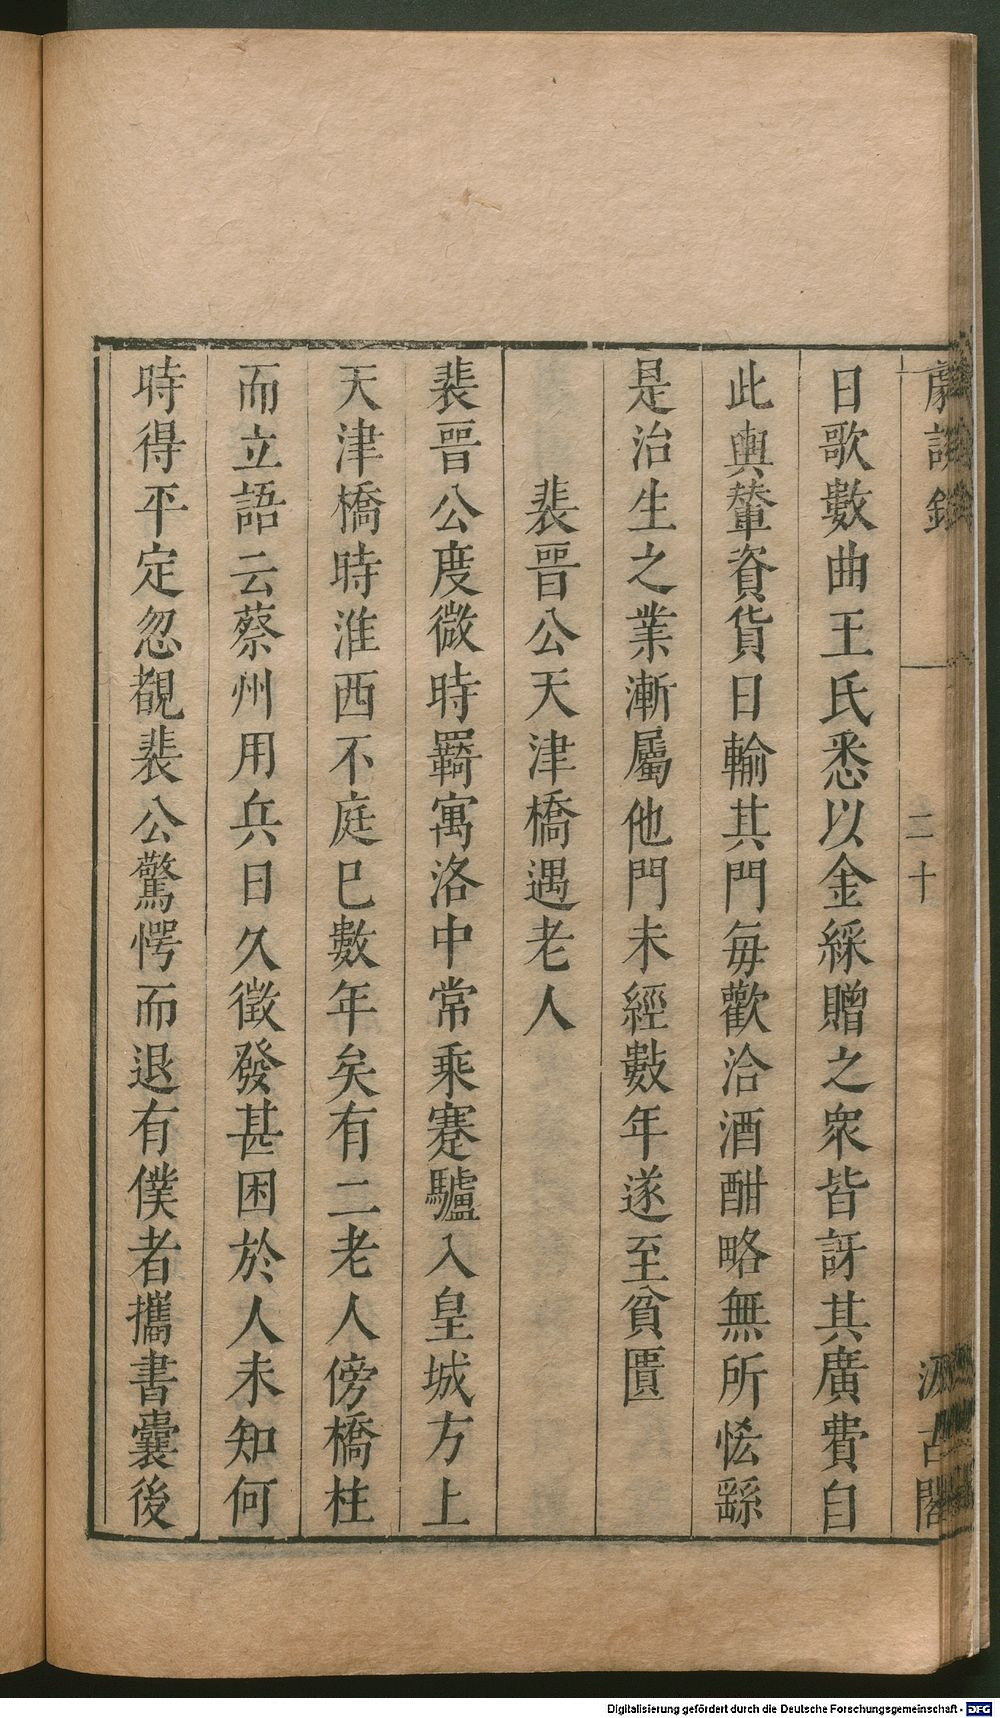 劇談錄
二十
汲古閣
日歌數曲王氏悉以金綵贈之衆皆訝其廣費自
此輿輦資貨日輸其門每歡洽酒酣略無所恡繇
是治生之業漸屬他門未經數年遂至貧匱
裴晉公天津橋遇老人
裴晉公度微時羇寓洛中常乘蹇驢入皇城方上
天津橋時淮西不庭巳數年矣有二老人傍橋柱
而立語云蔡州用兵日久徵發甚困於人未知何
時得平定忽覩裴公驚愕而退有僕者攜書囊後
Digitalisierung gefördert durch die Deutsche Forschungsgemeinschaft - DFG